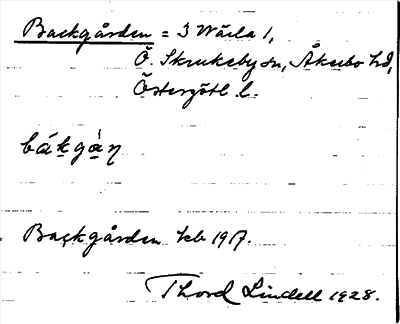 Backgården = 3 Wärla 1,
Ö. Skrukeby sn, Åkerbo hd,
Östergötl. l.
bákgá̀ṇ
Backgården kb 1917.
Thord Lindell 1928.